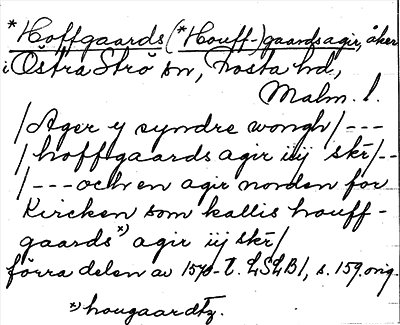 *Hoffgaards (*Houff-)gaards agir, åker
i Östra Strö sn, Frosta hd,
Malm. l.
/Ager y syndre wongh/---
/hoffgaards agir iij skr/--
/---och en agir norden for
Kircken som kallis houff-
gaards x) agir iij skr/
förra delen av 1570-t. LSLB1, s. 159. orig.
x) hougaardtz.